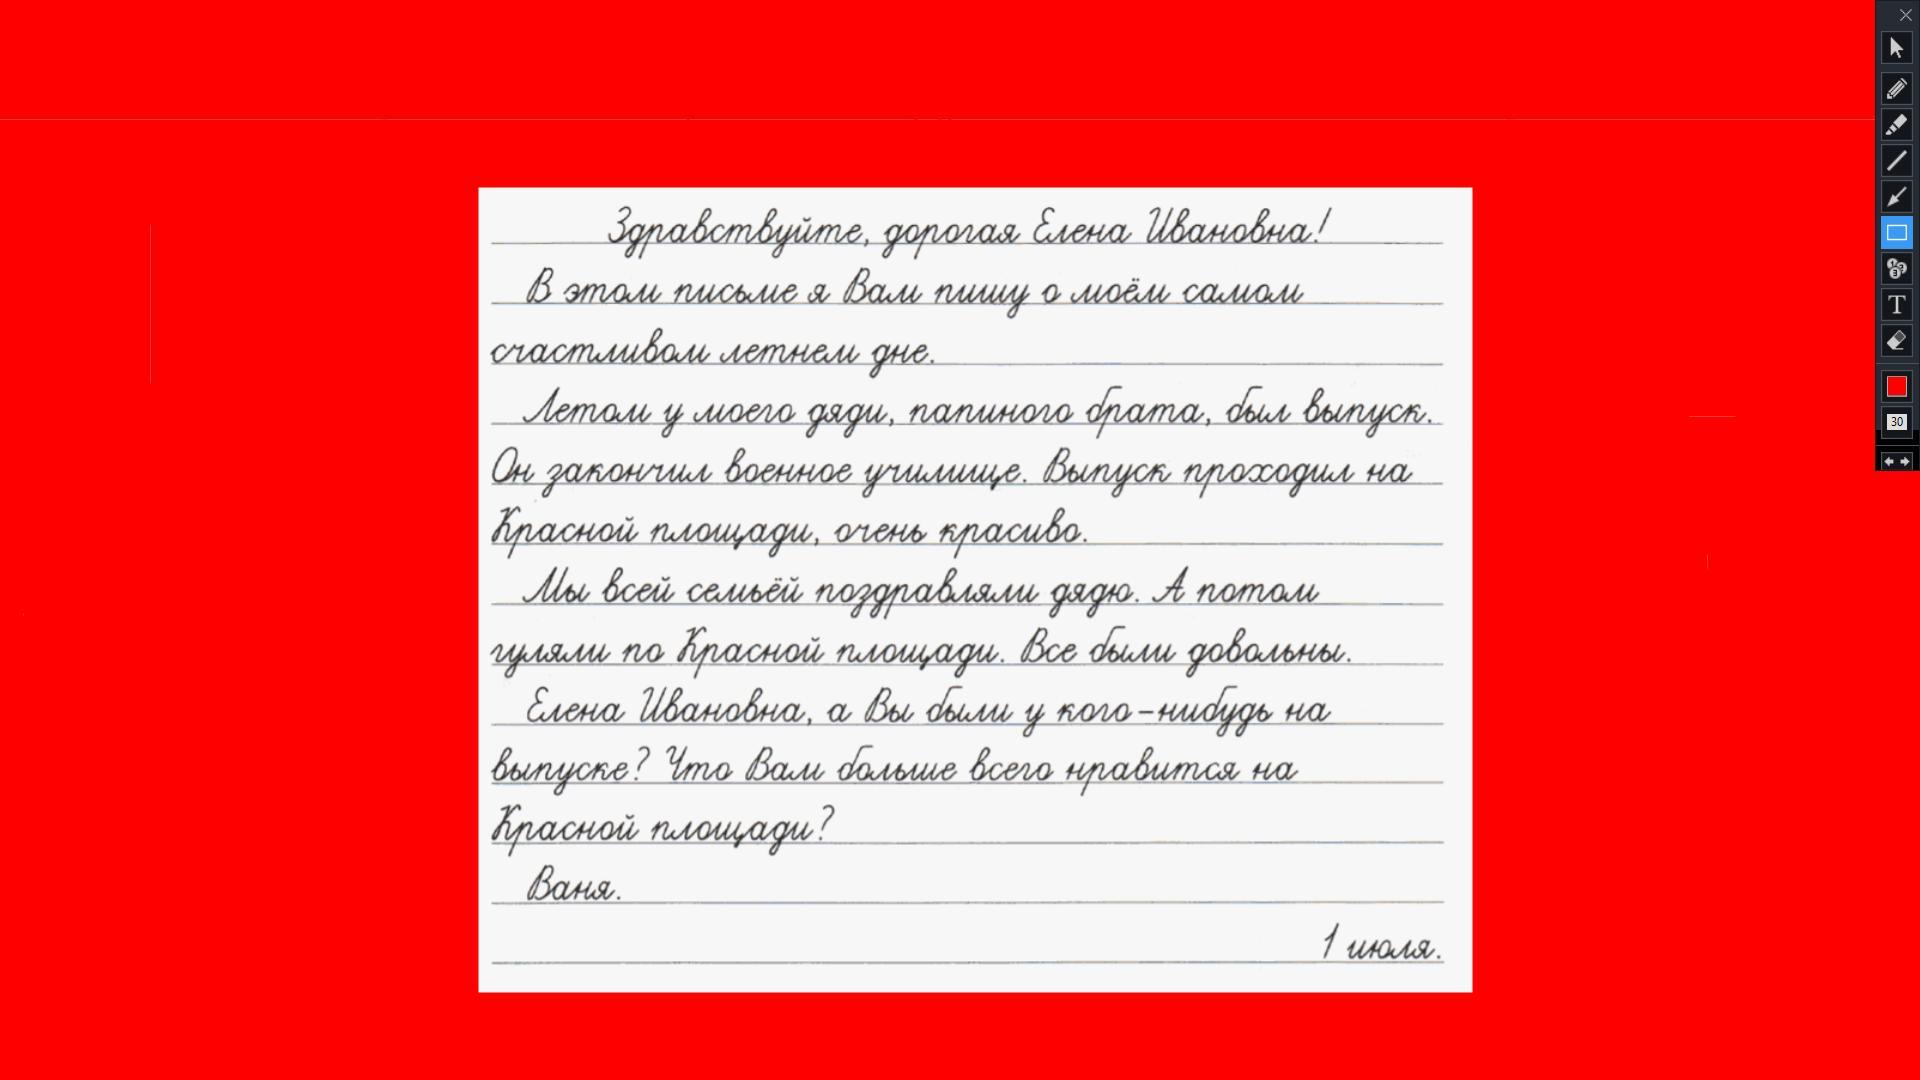 Здравствуйте, дорогая Елена Ивановна!
В этом письме я Вам пишу о моём самом
счастливом летнем дне.
Летом у моего дяди, папиного брата, был выпуск.
Он закончил военное училище. Выпуск проходил на
Красной площади, очень красиво.
Мы всей семьёй поздравляли дядю. А потом
гуляли по Красной площади. Все были довольны.
Елена Ивановна, а Вы были у кого-нибудь на
выпуске? Что Вам больше всего нравится на
Красной площади?
Ваня.
1 июля.
T
30